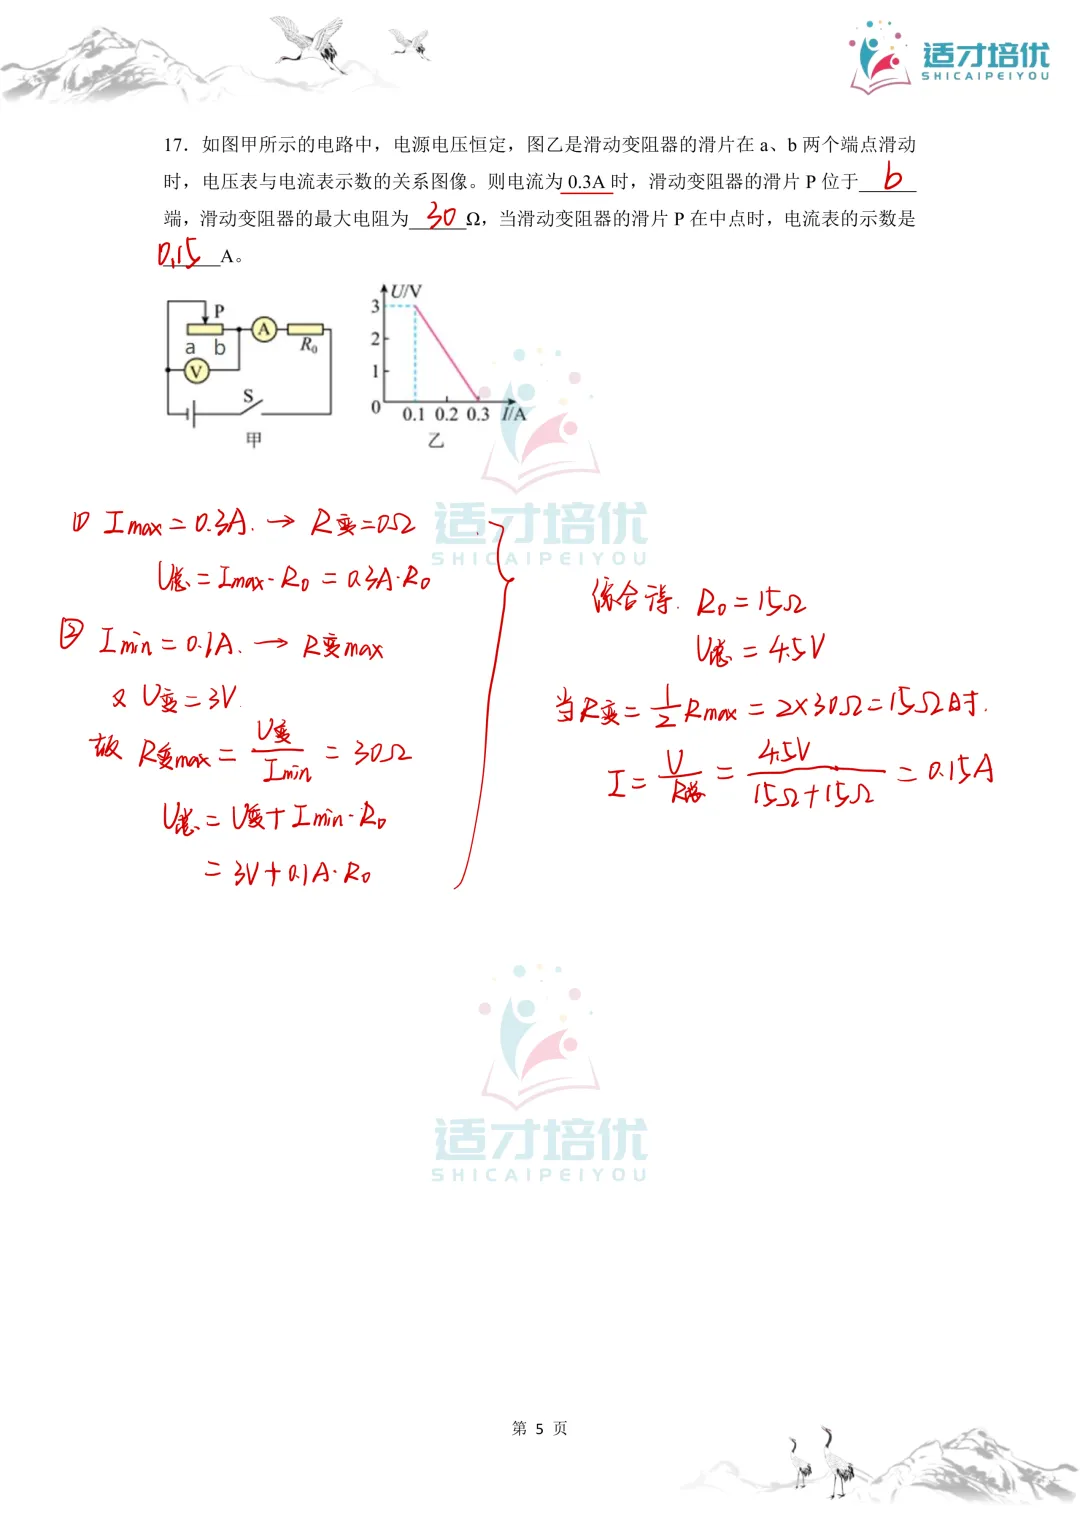 适才培优
SHICAIPEIYOU
17．如图甲所示的电路中，电源电压恒定，图乙是滑动变阻器的滑片在 a、b 两个端点滑动
时，电压表与电流表示数的关系图像。则电流为 0.3A 时，滑动变阻器的滑片 P 位于 b
端，滑动变阻器的最大电阻为 30 Ω，当滑动变阻器的滑片 P 在中点时，电流表的示数是
0.15 A。
P
a b
A
R₀
V
S
甲
U/V
3
2
1
0
0.1 0.2 0.3 I/A
乙
适才培优
SHICAIPEIYOU
① Imax = 0.3A. → R变=0Ω
U总 = Imax·R₀ = 0.3A·R₀
② Imin = 0.1A. → R变max
又 U变=3V.
故 R变max = U变/Imin = 30Ω
U总 = U变+Imin·R₀
= 3V+0.1A·R₀
综合得. R₀=15Ω
U总 = 4.5V
当R变= 1/2 Rmax = 2×30Ω=15Ω时.
I = U/R总 = 4.5V/15Ω+15Ω = 0.15A
适才培优
SHICAIPEIYOU
第 5 页